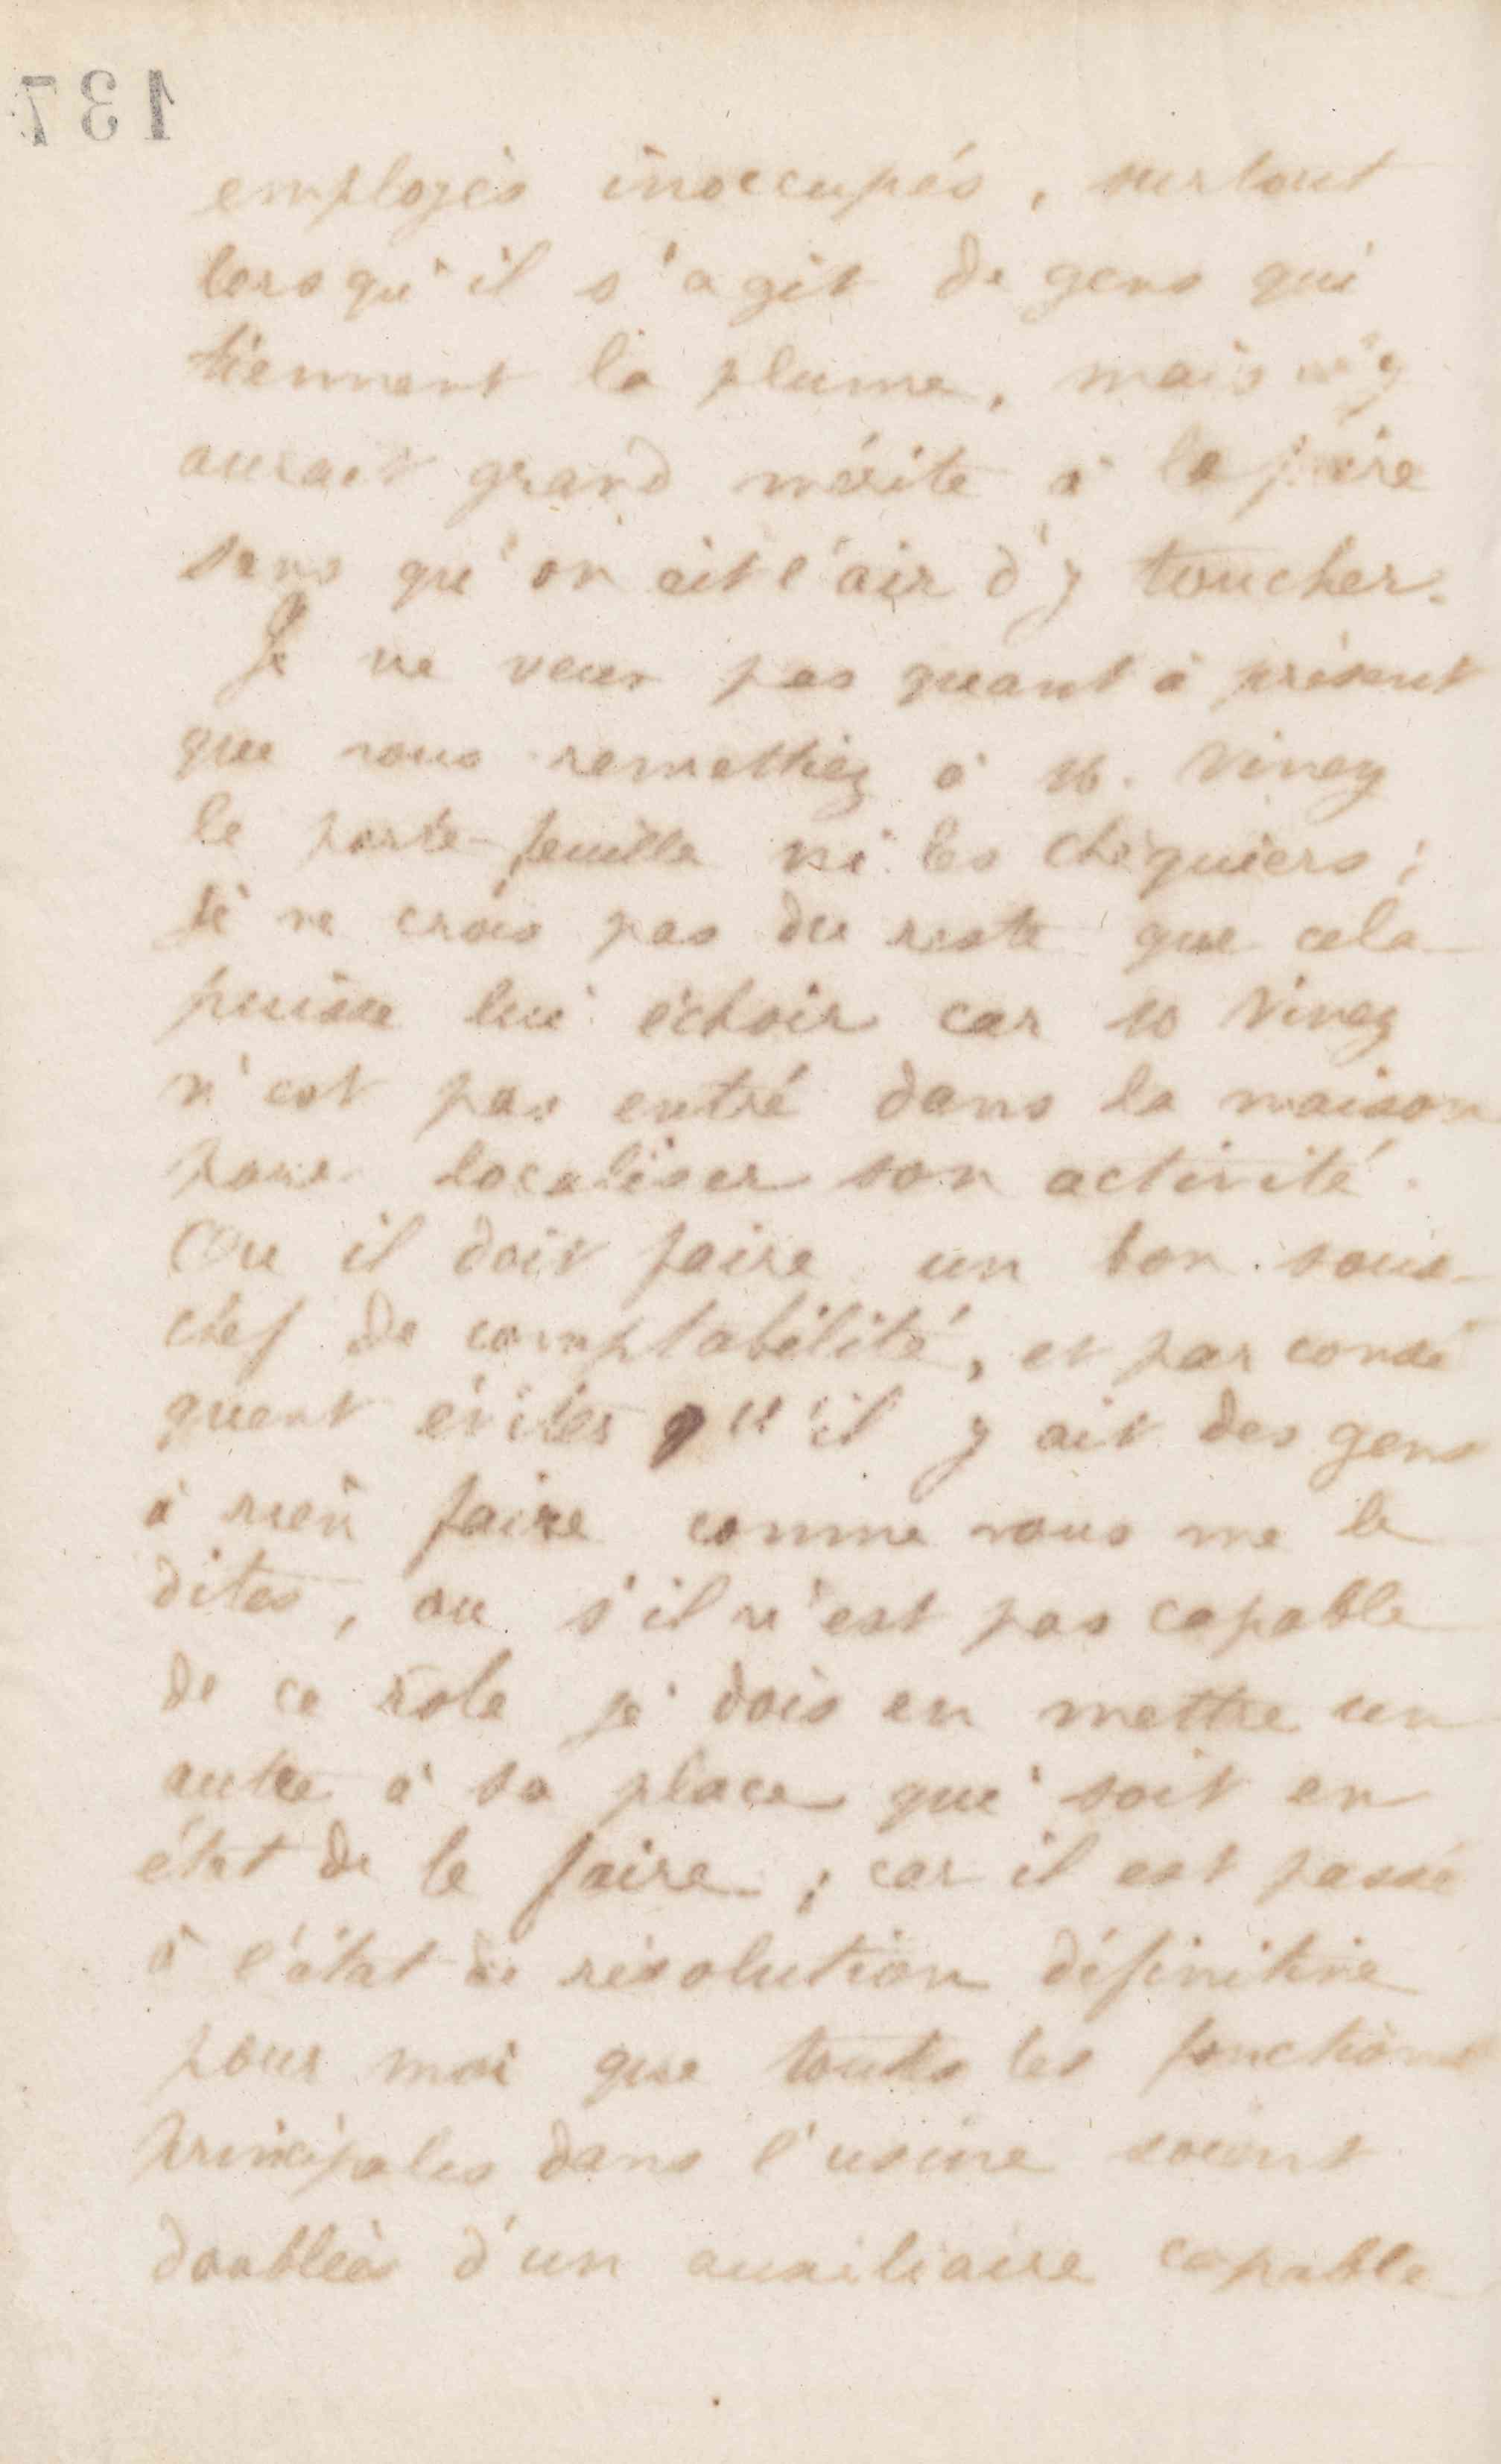 137
employés inoccupés, surtout
lorsqu'il s'agit de gens qui
tiennent la plume, mais
aurait grand mérite à le faire
sans qu'on ait l'air d'y toucher.
Je ne veux pas quant à présent
que vous remettiez à M. Viney
le porte-feuille ni les chéquiers ;
je ne crois pas du reste que cela
puisse lui échoir car M Viney
n'est pas entré dans la maison
pour localiser son activité.
Ou il doit faire un bon sous-
chef de comptabilité, et par consé
quent éviter qu'il y ait des gens
à rien faire comme vous me le
dites, ou s'il n'est pas capable
de ce rôle je dois en mettre un
autre à sa place qui soit en
état de le faire ; car il est passé
à l'état de résolution définitive
pour moi que toutes les fonctions
principales dans l'usine soient
doublées d'un auxiliaire capable